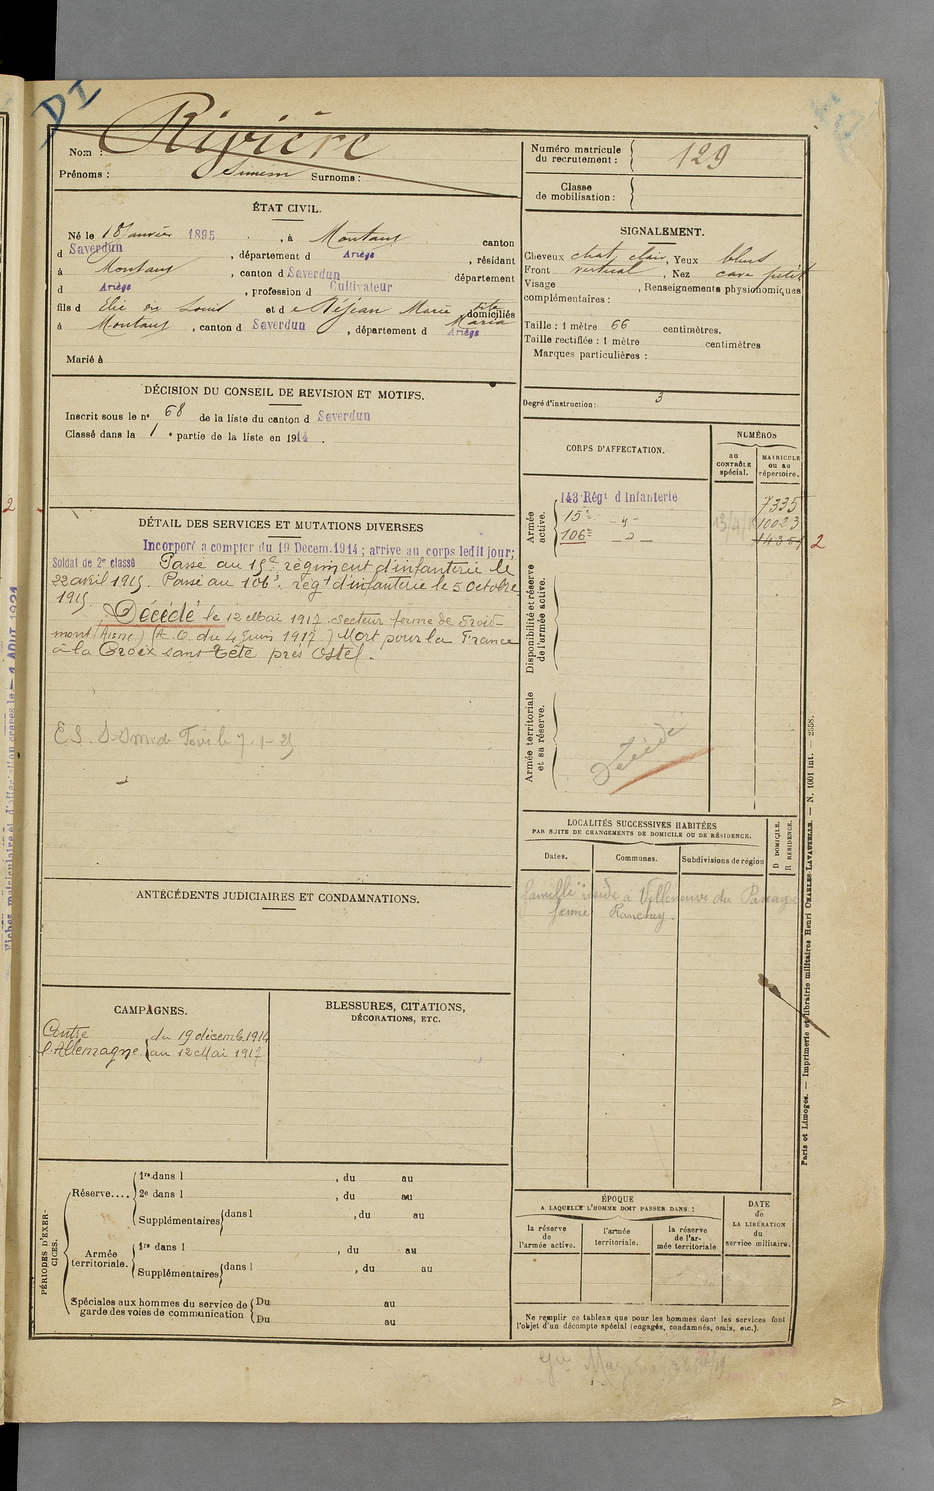 DI
Nom : Rivière
Prénoms : Simeon Surnoms :
Numéro matricule
du recrutement : 129
Classe
de mobilisation :
ÉTAT CIVIL.
Né le 18 Janvier 1895 , à Montaut canton
d Saverdun , département d Ariège , résidant
à Montaut , canton d Saverdun département
d Ariège , profession d Cultivateur
fils d Elie dit Louis et d e Déjean Marie dite Maria domiciliés
à Montaut , canton d Saverdun , département d Ariège
Marié à
SIGNALEMENT.
Cheveux chat. clair , Yeux bleus
Front vertical , Nez cave petit
Visage , Renseignements physionomiques
complémentaires :
Taille : 1 mètre 66 centimètres.
Taille rectifiée : 1 mètre centimètres
Marques particulières :
Degré d'instruction : 3
DÉCISION DU CONSEIL DE REVISION ET MOTIFS.
Inscrit sous le n° 68 de la liste du canton d Saverdun
Classé dans la 1 e partie de la liste en 1914 .
DÉTAIL DES SERVICES ET MUTATIONS DIVERSES
Incorporé à compter du 19 Decem. 1914 ; arrive au corps ledit jour;
Soldat de 2e classe Passé au 15e régiment d'infanterie le
22 avril 1915. Passé au 106e régt d'infanterie le 5 Octobre
1915.
Décédé le 12 Mai 1917 secteur ferme de Froid-
mont (Aisne) (A.O. du 4 Juin 1917) Mort pour la France
à la Croix sans Tête près Ostel.
CORPS D'AFFECTATION.
NUMÉROS
au
CONTRÔLE
spécial.
MATRICULE
ou au
répertoire.
Armée
active.
143 Régt d Infanterie 7335
15e 10023
106e 14351 2
Disponibilité et réserve
de l'armée active.
Armée territoriale
et sa réserve.
Décédé
LOCALITÉS SUCCESSIVES HABITÉES
PAR SUITE DE CHANGEMENTS DE DOMICILE OU DE RÉSIDENCE.
Dates.
Communes.
Subdivisions de région
D DOMICILE.
R RÉSIDENCE.
famille réside à Villeneuve du Pareage
ferme
ANTÉCÉDENTS JUDICIAIRES ET CONDAMNATIONS.
CAMPAGNES.
Contre du 19 décemb. 1914
l'Allemagne au 12 Mai 1917
BLESSURES, CITATIONS,
DÉCORATIONS, ETC.
PÉRIODES D'EXER-
CICES.
Réserve.... 1re dans l , du au
2e dans l , du au
Supplémentaires dans l , du au
Armée
territoriale. 1re dans l , du au
Supplémentaires dans l , du au
Spéciales aux hommes du service de
garde des voies de communication Du au
Du au
ÉPOQUE
A LAQUELLE L'HOMME DOIT PASSER DANS :
la réserve
de
l'armée active.
l'armée
territoriale.
la réserve
de l'ar-
mée territoriale
DATE
de
LA LIBÉRATION
du
service militaire.
Ne remplir ce tableau que pour les hommes dont les services font
l'objet d'un décompte spécial (engagés, condamnés, omis, etc.).
Paris et Limoges. — Imprimerie et librairie militaires Henri CHARLES-LAVAUZELLE. — N. 1001 int. — 2558.
2